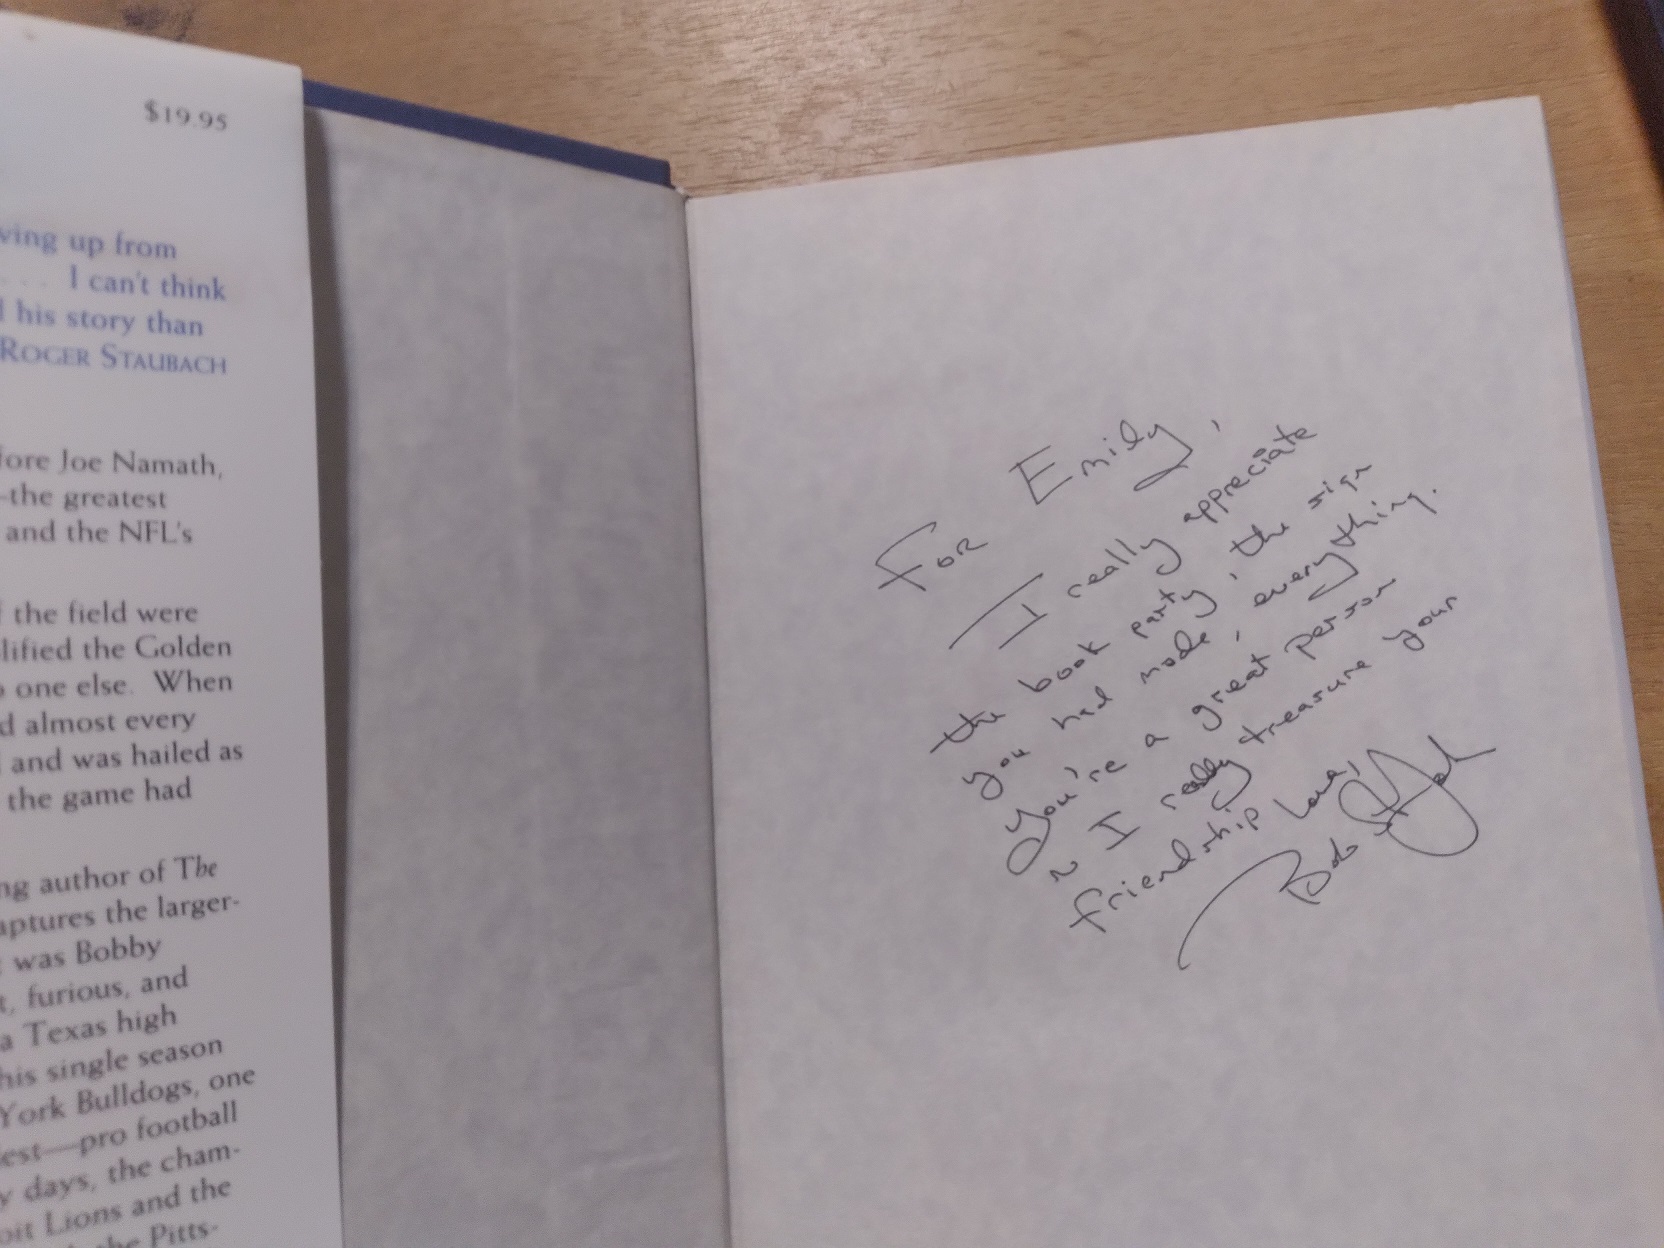 $19.95
ving up from
. . . I can't think
his story than
ROGER STAUBACH
fore Joe Namath,
—the greatest
and the NFL's
the field were
lified the Golden
one else. When
d almost every
and was hailed as
the game had
ng author of The
aptures the larger-
was Bobby
t, furious, and
a Texas high
his single season
York Bulldogs, one
est—pro football
y days, the cham-
oit Lions and the
the Pitts-
For Emily,
I really appreciate
the book party, the sign
you had made, everything.
You're a great person
~ I really treasure your
friendship Love,
Bob St. John